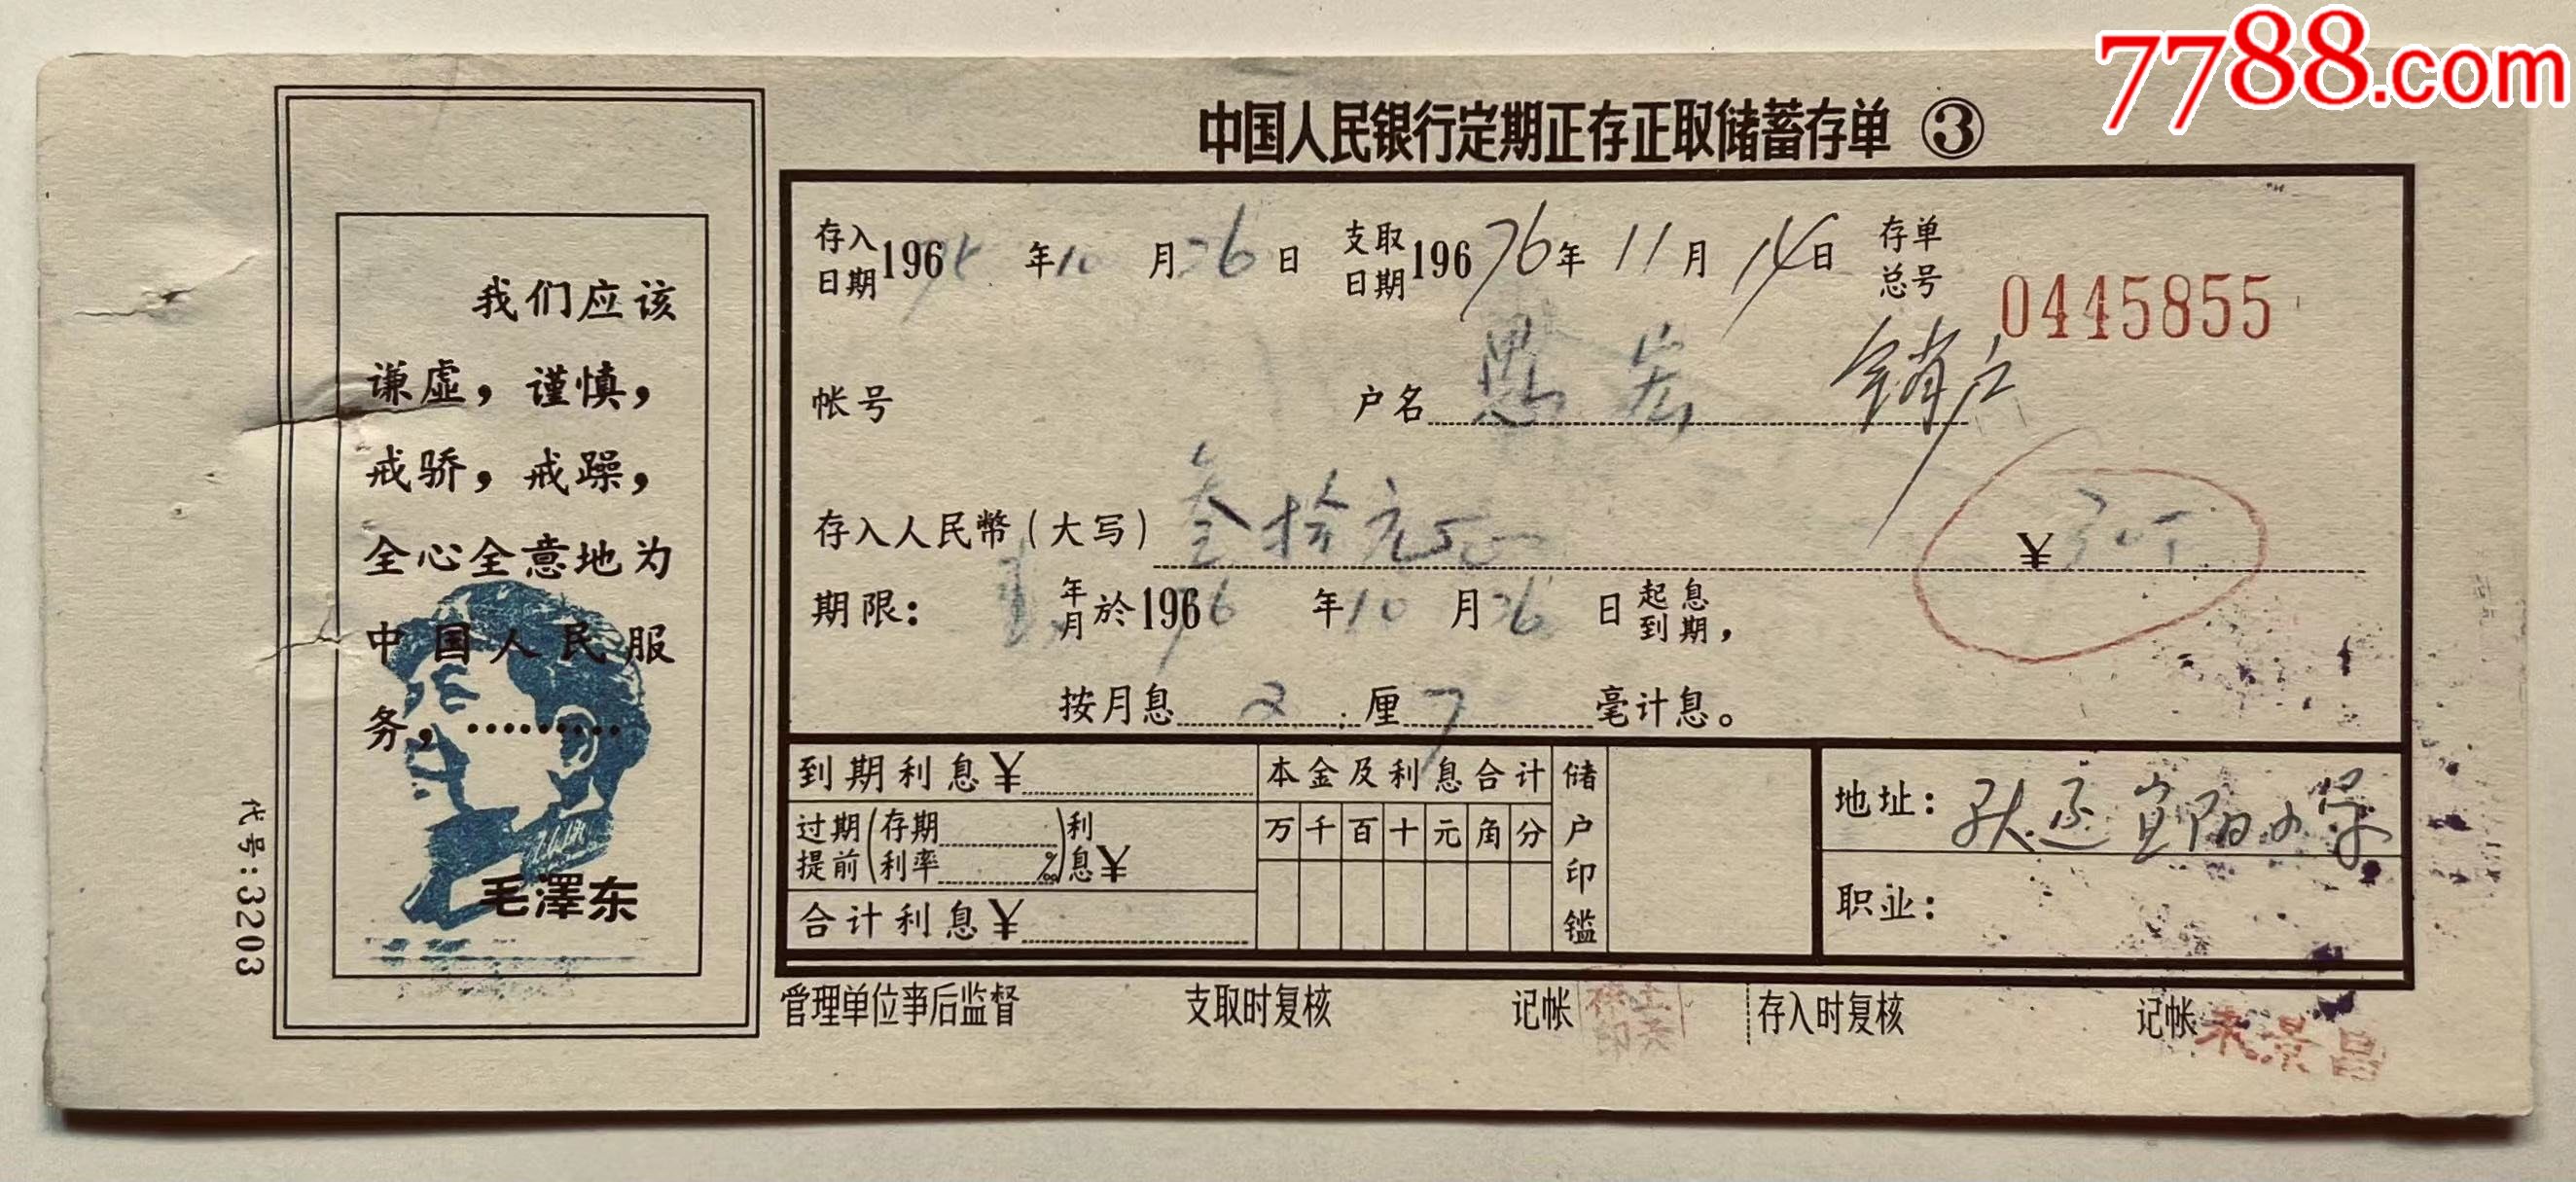 7788.com
中国人民银行定期正存正取储蓄存单 ③
我们应该
谦虚，谨慎，
戒骄，戒躁，
全心全意地为
中国人民服
务，………
毛澤东
代号:3203
存入日期196 年10月26日 支取日期196 76年11月14日 存单总号 0445855
帐号 户名 销户
存入人民幣(大写) 叁拾元 ¥
期限： 年月於196 76年10月26日起息到期，
按月息2厘7毫计息。
到期利息¥ 本金及利息合计 储户印鑑 地址： 宜阳小学
过期提前(存期利率 ‰)利息¥ 万千百十元角分
合计利息¥ 职业：
管理单位事后监督 支取时复核 记帐 存入时复核 记帐 景昌